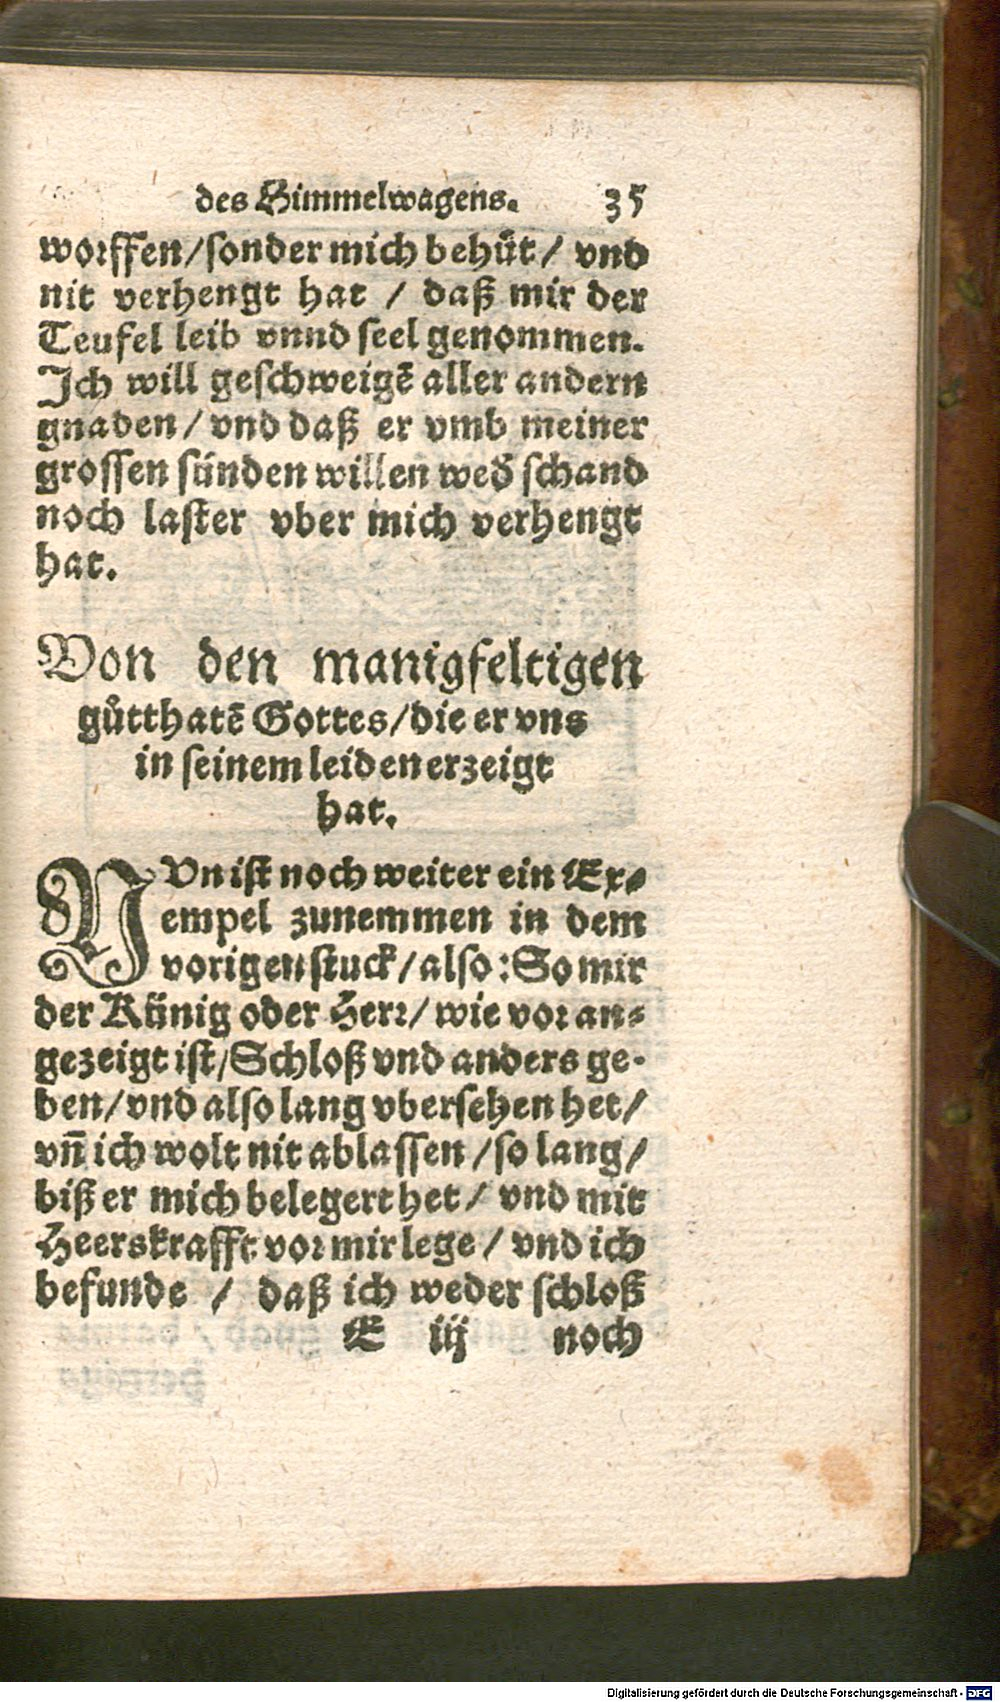 des Himmelwagens. 35
worffen/sonder mich behüt/ vnd
nit verhengt hat / daß mir der
Teufel leib vnnd seel genommen.
Ich will geschweigẽ aller andern
gnaden/ vnd daß er vmb meiner
grossen sünden willen wed' schand
noch laster vber mich verhengt
hat.
Von den manigfeltigen
gůtthatẽ Gottes/die er vns
in seinem leiden erzeigt
hat.
NVn ist noch weiter ein Ex⸗
empel zunemmen in dem
vorigen stuck/also: So mir
der Künig oder Herr/ wie vor an⸗
gezeigt ist/Schloß vnd anders ge-
ben/vnd also lang vbersehen het/
vñ ich wolt nit ablassen /so lang/
biß er mich belegert het/ vnd mit
Heerskrafft vor mir lege / vnd ich
befunde / daß ich weder schloß
E iij noch
Digitalisierung gefördert durch die Deutsche Forschungsgemeinschaft - DFG